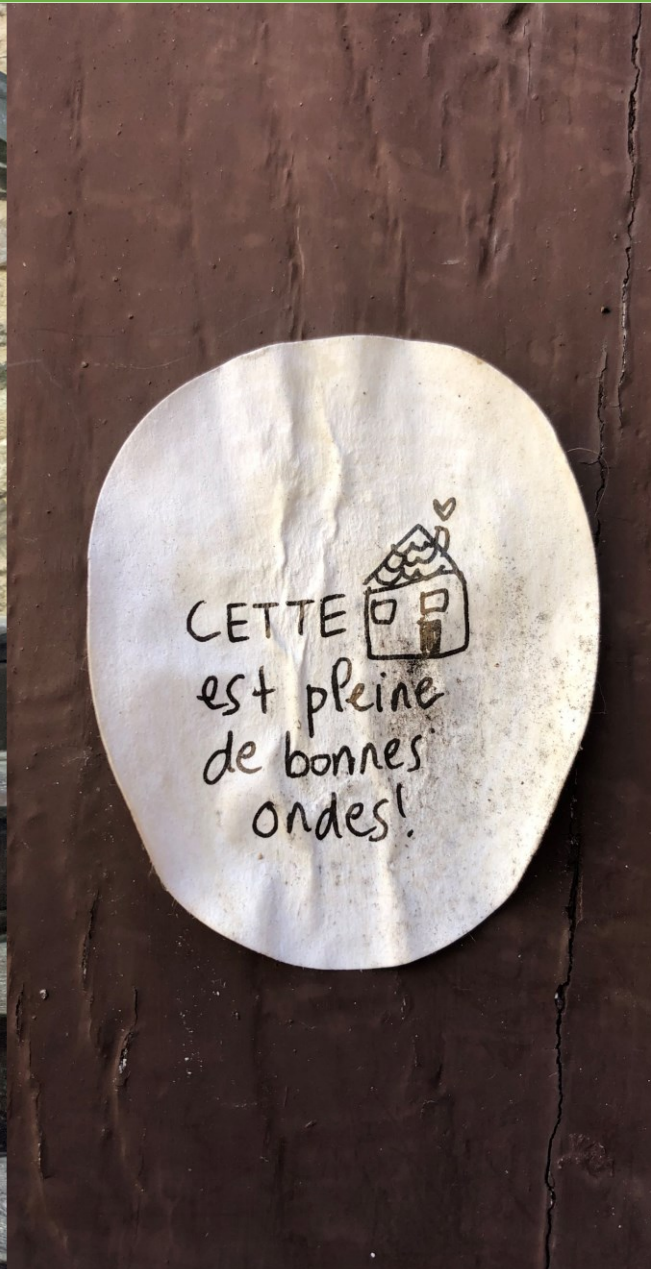 CETTE
est pleine
de bonnes
ondes!